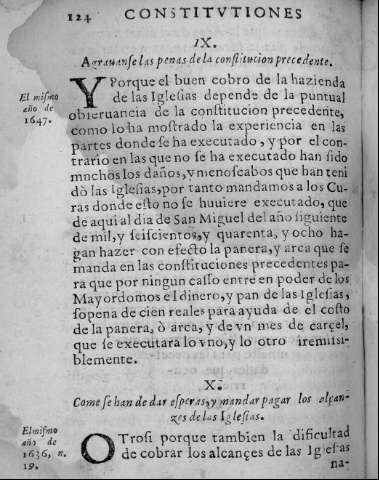 124 CONSTITVTIONES
IX.
Agrauanse las penas de la constitucion precedente.
El mismo
año de
1647.
Y Porque el buen cobro de la hazienda
de las Iglesias depende de la puntual
obseruancia de la constitucion precedente,
como lo ha mostrado la experiencia en las
partes donde se ha executado, y por el con-
trario en las que no se ha executado han sido
muchos los daños, y menoscabos que han teni
dò las Iglesias, por tanto mandamos a los Cu-
ras donde esto no se huuiere executado, que
de aqui al dia de San Miguel del año siguiente
de mil, y seiscientos, y quarenta, y ocho ha-
gan hazer con efecto la panera, y arca que se
manda en las constituciones precedentes pa-
ra que por ningun casso entre en poder de los
Mayordomos el dinero, y pan de las Iglesias,
sopena de cien reales para ayuda de el costo
de la panera, ò arca, y de vn mes de carçel,
que se executarà lo vno, y lo otro iremissi-
blemente.
X.
Come se han de dar esperas, y mandar pagar los alçan-
zes de las Iglesias.
El mismo
año de
1636, n.
19.
O Trosi porque tambien la dificultad
de cobrar los alcançes de las Iglesias
na-